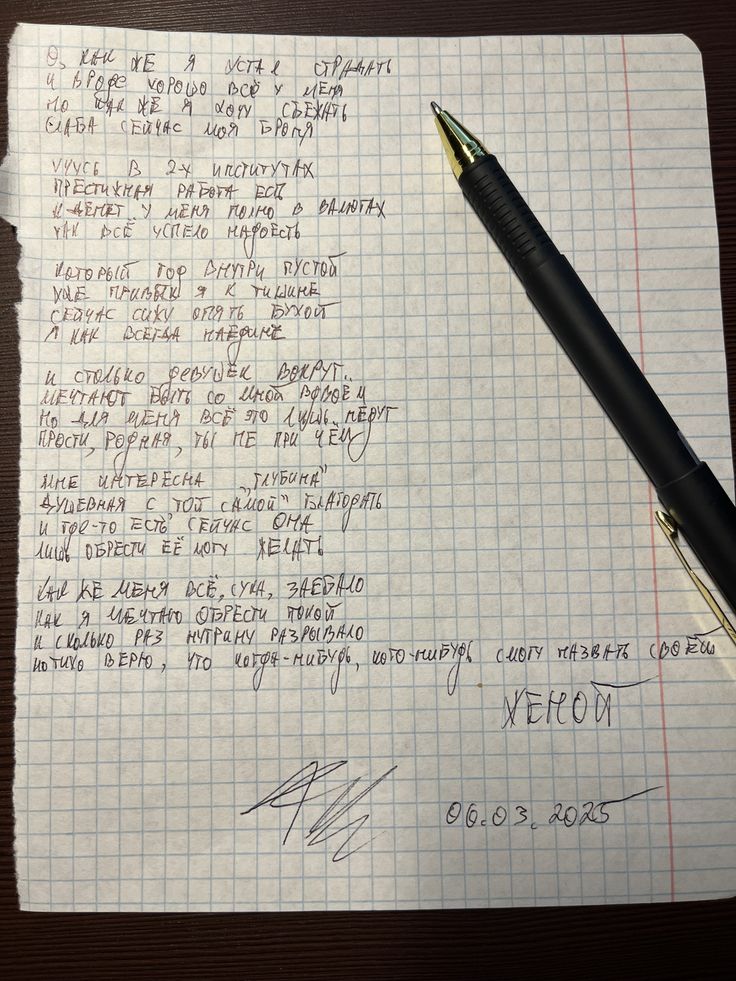 О, КАК ЖЕ Я УСТАЛ СТРАДАТЬ
И ВРОДЕ ХОРОШО ВСЁ У МЕНЯ
НО КАК ЖЕ Я ХОЧУ СЪЕХАТЬ
СЛАБА СЕЙЧАС МОЯ БРОНЯ
УЧУСЬ В 2-Х ИНСТИТУТАХ
ПРЕСТИЖНАЯ РАБОТА ЕСТЬ
И ДЕНЕГ У МЕНЯ ПОЛНО В ВАЛЮТАХ
КАК ВСЁ УСПЕЛО НАДОЕСТЬ
КОТОРЫЙ ГОД ВНУТРИ ПУСТОЙ
УЖЕ ПРИВЫК Я К ТИШИНЕ
СЕЙЧАС СИЖУ ОПЯТЬ БУХОЙ
КАК ВСЕГДА НАЕДИНЕ
И СТОЛЬКО ДЕВУШЕК ВОКРУГ..
МЕЧТАЮТ БЫТЬ СО МНОЙ ВДВОЁМ
НО ДЛЯ МЕНЯ ВСЁ ЭТО ЛИШЬ НЕДУГ
ПРОСТИ, РОДНАЯ, ТЫ НЕ ПРИ ЧЁМ
МНЕ ИНТЕРЕСНА „ГЛУБИНА"
ДУШЕВНАЯ С „ТОЙ САМОЙ" БЛАГОДАТЬ
И ГДЕ-ТО ЕСТЬ СЕЙЧАС ОНА
ЛИШЬ ОБРЕСТИ ЕЁ МОГУ ЖЕЛАТЬ
КАК ЖЕ МЕНЯ ВСЁ, СУКА, ЗАЕБАЛО
КАК Я МЕЧТАЮ ОБРЕСТИ ПОКОЙ
И СКОЛЬКО РАЗ НУТРИНУ РАЗРЫВАЛО
НО ТИХО ВЕРЮ, ЧТО КОГДА-НИБУДЬ, КОГО-НИБУДЬ СМОГУ НАЗВАТЬ СВОЕЙ
ЖЕНОЙ
06.03.2025